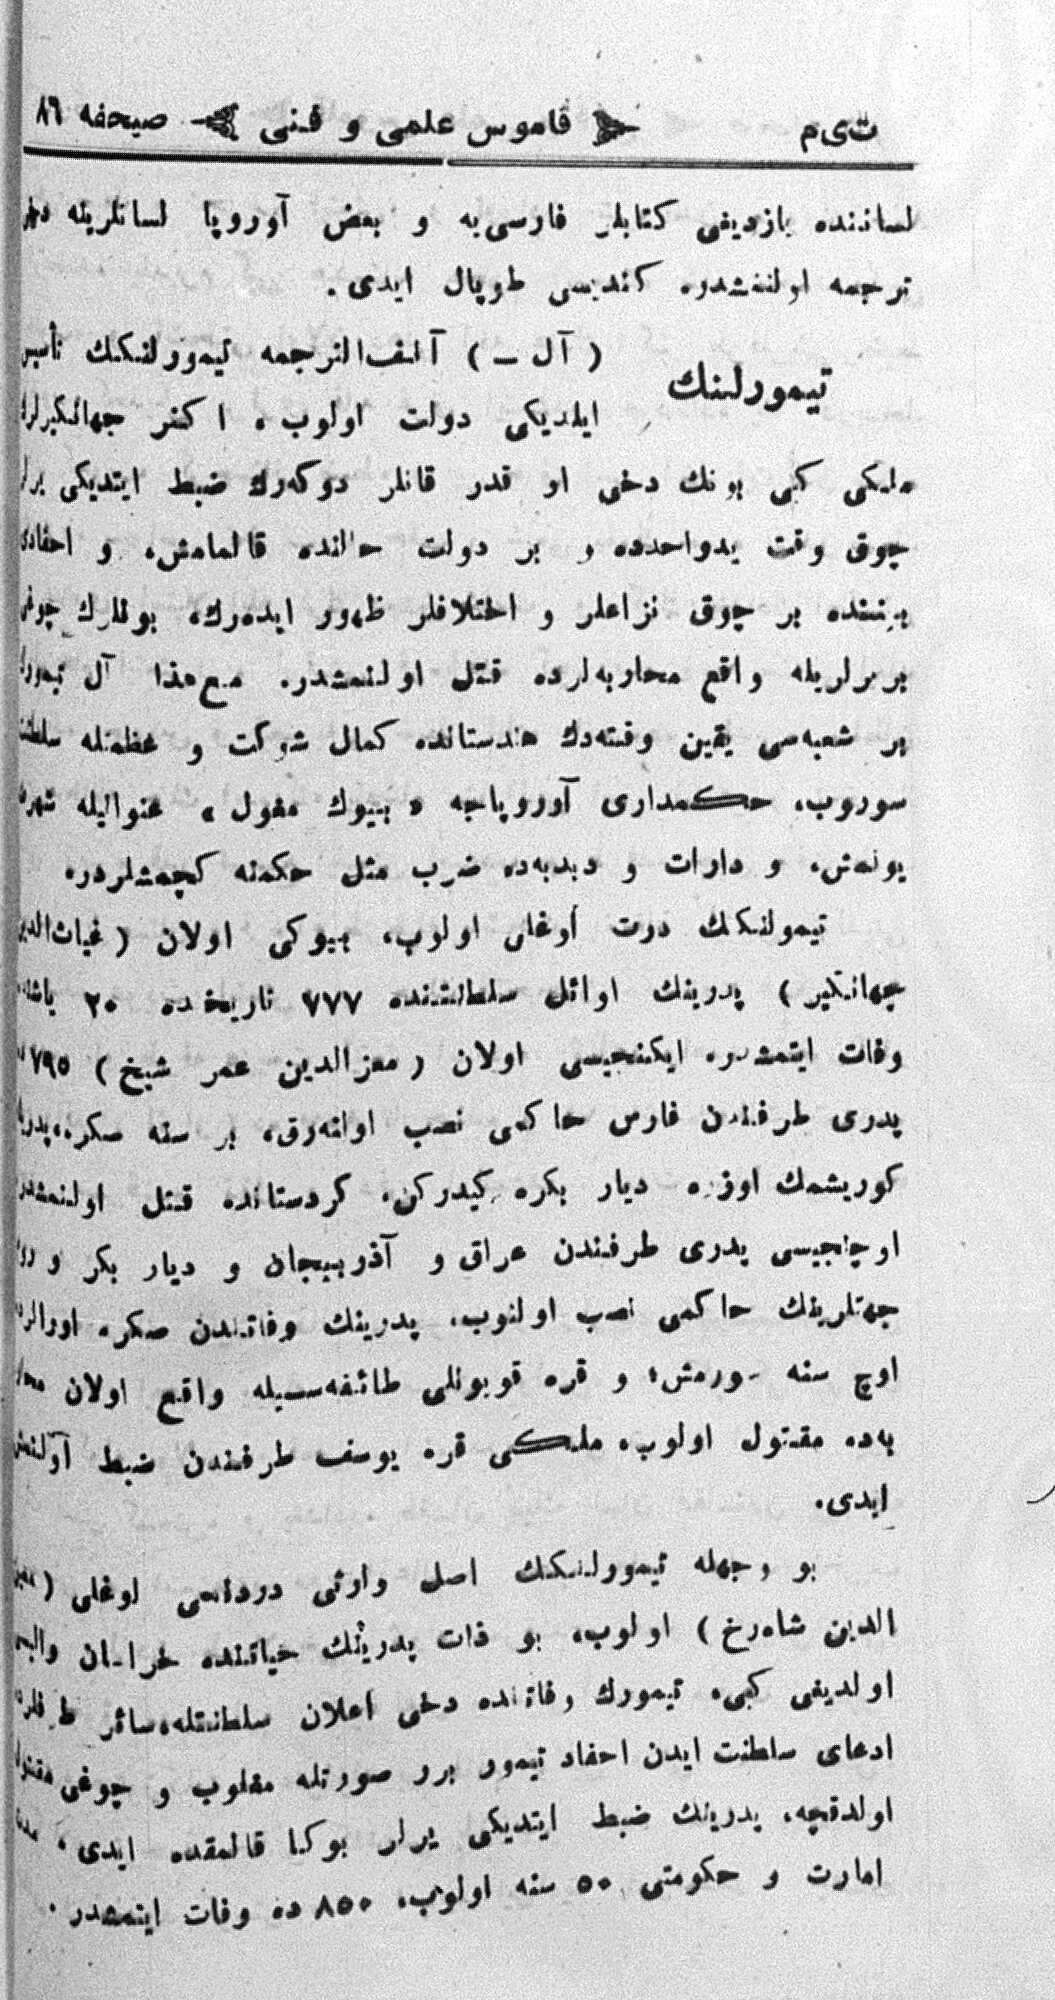 ت‌ی‌م قاموس علمی و فنی صیحفه ٨٦
لساننده یازدیغی کتابلر فارسی‌یه و بعض آوروپا لسانلرینه دخی
ترجمه اولنمشدر. کندیسی طوپال ایدی.
تیمورلنك
( آل ــ ) آلف‌الترجمه تیمورلنكك تأسیس
ایلدیکی دولت اولوب، اکثر جهانکیرلرك
ملکی کبی بونك دخی او قدر قانلر دوکه‌رك ضبط ایتدیکی یرلر
چوق وقت یدواحدده و بر دولت حالنده قالمامش، و احفادی
بیننده بر چوق نزاعلر و اختلافلر ظهور ایده‌رك، بونلرك چوغی
بربرلریله واقع محاربه‌لرده قتل اولنمشدر. مع‌هذا آل تیمورك
بر شعبه‌سی یقین وقته‌دك هندستانده کمال شوکت و عظمتله سلطنت
سوروب، حکمداری آوروپاجه « بیوك مغول » عنوانیله شهرت
بولمش، و دارات و دبدبه‌ده ضرب مثل حکمنه کچمشلردر.
تیمولنكك درت اوغلی اولوب، بیوکی اولان ( غیاث‌الدین
جهانکیر ) پدرینك اوائل سلطنتنده ٧٧٧ تاریخنده ٢٠ یاشنده
وفات ایتمشدر. ایکنجیسی اولان ( معزالدین عمر شیخ ) ٧٩٥ ده
پدری طرفندن فارس حاکمی نصب اولنه‌رق، بر سنه صکره، پدریله
کوریشمك اوزره دیار بکره کیدرکن، کردستانده قتل اولنمشدر.
اوچنجیسی پدری طرفندن عراق و آذربیجان و دیار بکر و روم
جهتلرینك حاکمی نصب اولنوب، پدرینك وفاتندن صکره اورالرده
اوچ سنه سورمش، و قره قویونلی طائفه‌سیله واقع اولان محار
به‌ده مقتول اولوب، ملکی قره یوسف طرفندن ضبط اولنمش
ایدی.
بو وجهله تیمورلنكك اصل وارثی دردنجی اوغلی ( معین
الدین شاهرخ ) اولوب، بو ذات پدرینك حیاتنده خراسان والیسی
اولدیغی کبی، تیمورك وفاتنده دخی اعلان سلطنتله، سائر طرفلرده
ادعای سلطنت ایدن احفاد تیمور برر صورتله مغلوب و چوغی مقتول
اولدقچه، پدرینك ضبط ایتدیکی یرلر بوکا قالمقده ایدی، مدت
امارت و حکومتی ٥٠ سنه اولوب، ٨٥٠ ده وفات ایتمشدر.